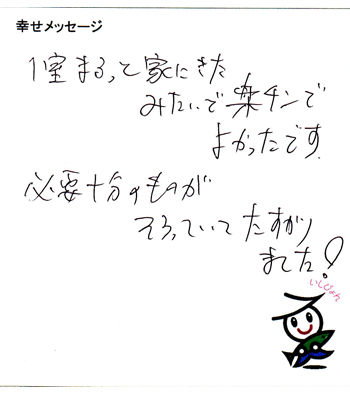 幸せメッセージ
1室まるっと家にきた
みたいで楽チンで
よかったです
必要十分のものが
そろっていてたすかり
ました!